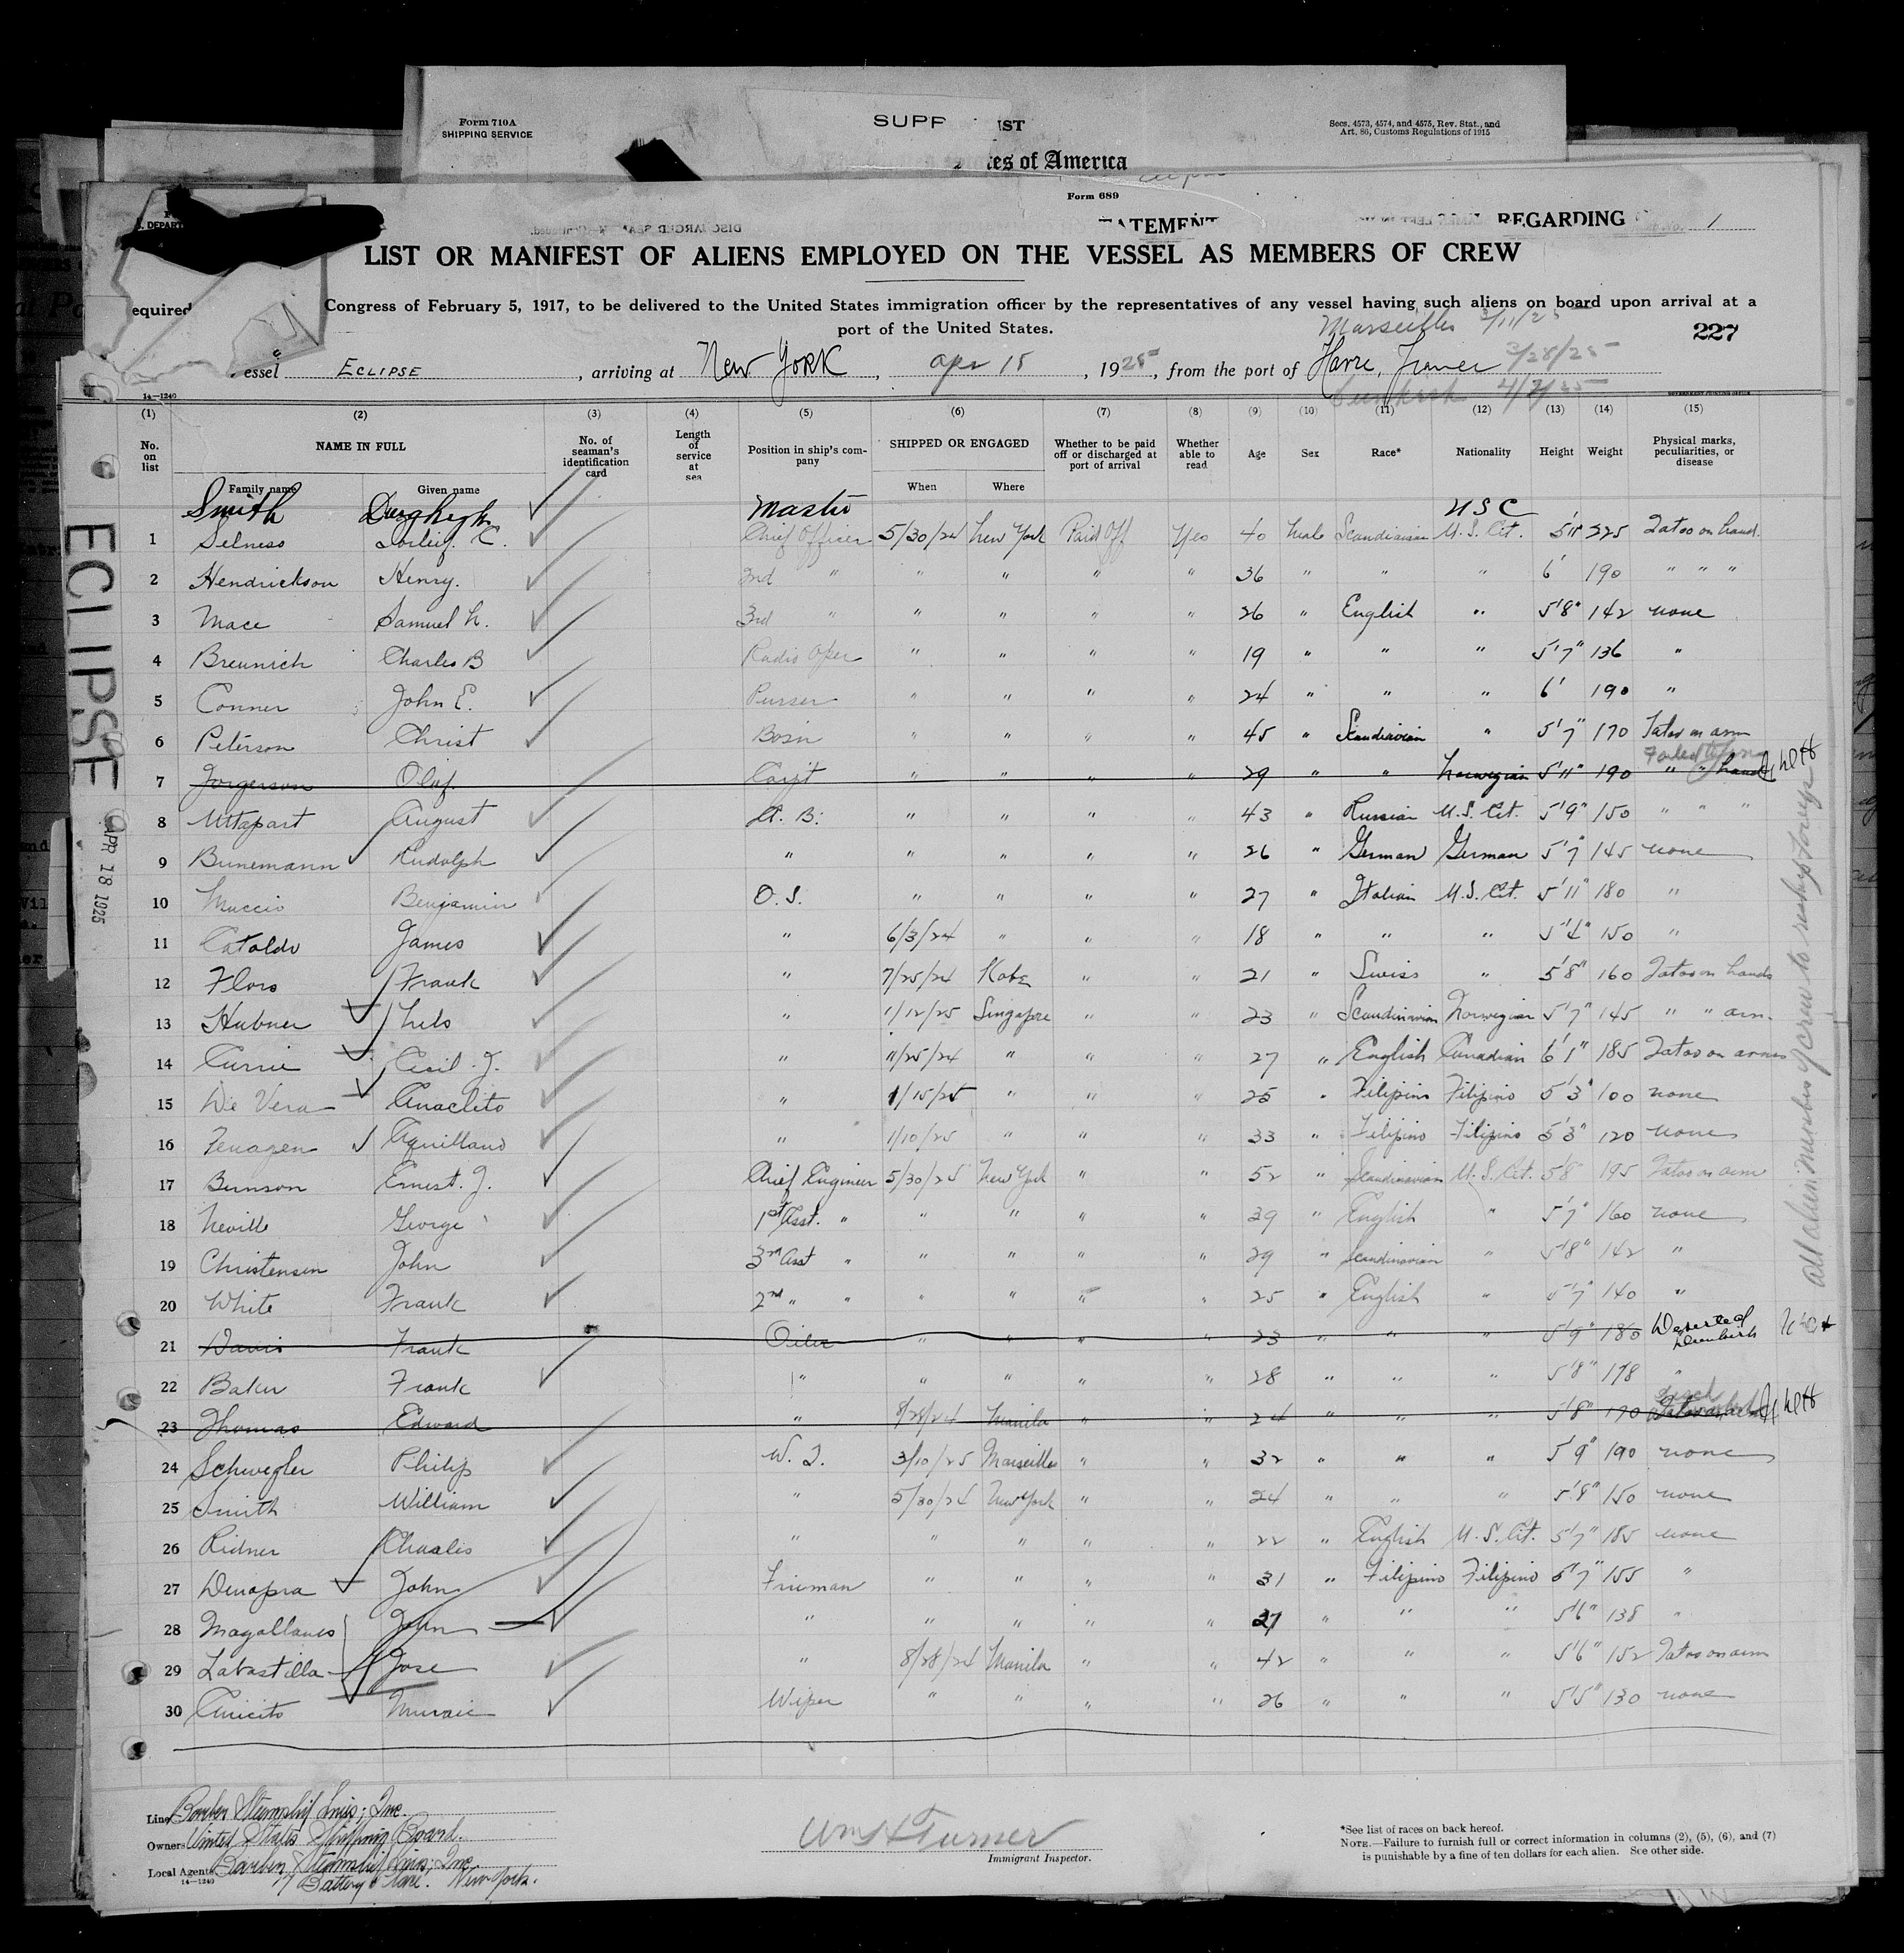 Form 710A
SHIPPING SERVICE
SUPP IST
Secs. 4573, 4574, and 4575, Rev. Stat., and
Art. 86, Customs Regulations of 1915
es of America
Form 689
ATEMENT REGARDING
1
LIST OR MANIFEST OF ALIENS EMPLOYED ON THE VESSEL AS MEMBERS OF CREW
equired Congress of February 5, 1917, to be delivered to the United States immigration officer by the representatives of any vessel having such aliens on board upon arrival at a
port of the United States.
Marseilles 3/11/25
227
essel ECLIPSE, arriving at New York, Apr 18, 1925, from the port of Havre, France 3/28/25
4/2/25
14—1240
(1) (2) (3) (4) (5) (6) (7) (8) (9) (10) (11) (12) (13) (14) (15)
No. on list NAME IN FULL No. of seaman's identification card Length of service at sea Position in ship's company SHIPPED OR ENGAGED Whether to be paid off or discharged at port of arrival Whether able to read Age Sex Race* Nationality Height Weight Physical marks, peculiarities, or disease
Family name Given name When Where
Smith Master USC
1 Selness C. Chief Officer 5/30/24 New York Paid Off Yes 40 Male Scandinavian U.S. Cit. 5'11 225 Tatoo on hand.
2 Hendrickson Henry. 2nd " " " " " 36 " " " 6' 190 " " "
3 Mace Samuel N. 3rd " " " " " 26 " English " 5'8" 142 none
4 Breunich Charles B Radio Oper " " " " 19 " " " 5'7" 136 "
5 Conner John E. Purser " " " " 24 " " " 6' 190 "
6 Peterson Christ Bosn " " " " 45 " Scandinavian " 5'7" 170 Tatoo on arm
7 Jorgerson Olaf. Carpt " " " " 29 " " Norwegian 5'11" 190 " " hand
8 August A. B. " " " " 43 " Russian U.S. Cit. 5'9" 150 " " "
9 Bunemann Rudolph " " " " " 26 " German German 5'7" 145 none
10 Muccio Benjamin O. S. " " " " 27 " Italian U.S. Cit. 5'11" 180 "
11 Cataldo James " 6/3/24 " " " 18 " " " 5'4" 150 "
12 Flors Frank " 7/25/24 Kobe " " 21 " Swiss " 5'8" 160 Tatoo on hands
13 Hubner Nils " 1/12/25 Singapre " " 23 " Scandinavian Norwegian 5'7" 145 " " arm.
14 Currie Cecil J. " 11/25/24 " " " 27 " English Canadian 6'1" 185 Tatoo on arms
15 De Vera Anaclito " 1/15/25 " " " 25 " Filipino Filipino 5'3" 100 none
16 Aquilland " 1/10/25 " " " 33 " Filipino Filipino 5'3" 120 none
17 Bunson Ernest. J. Chief Engineer 5/30/25 New York " " 52 " Scandinavian U.S. Cit. 5'8" 195 Tatoo on arm
18 Neville George 1st Asst. " " " " " 39 " English " 5'7" 160 none
19 Christensen John 3rd Asst " " " " " 29 " Scandinavian " 5'8" 142 "
20 White Frank 2nd " " " " " " 25 " English " 5'7" 140 "
21 Davis Frank Oiler " " " " 23 " " " 5'9" 180 Deserted
22 Baker Frank " " " " " 28 " " " 5'8" 178 "
23 Thomas Edward " 8/28/24 Manila " " 24 " " " 5'8" 170
24 Schwegler Philip W. T. 3/10/25 Marseilles " " 32 " " " 5'9" 190 none
25 Smith William " 5/30/24 New York " " 24 " " " 5'8" 150 none
26 Ridner Charles " " " " " 22 " English U.S. Cit. 5'7" 185 none
27 Denopra John Fireman " " " " 31 " Filipino Filipino 5'7" 155 "
28 Magallanes John " " " " " 27 " " " 5'6" 138 "
29 Labastilla Jose " 8/28/24 Manila " " 42 " " " 5'6" 152 Tatoo on arm
30 Wiper " " " " 26 " " " 5'5" 130 none
ECLIPSE
APR 18 1925
All alien members of crew to reship foreign
Line Barber Steamship Lines, Inc.
Owners United States Shipping Board.
Local Agents Barber Steamship Lines, Inc.
17 Battery Place. New York.
14—1240
Wm H Turner
Immigrant Inspector.
*See list of races on back hereof.
NOTE.—Failure to furnish full or correct information in columns (2), (5), (6), and (7)
is punishable by a fine of ten dollars for each alien. See other side.